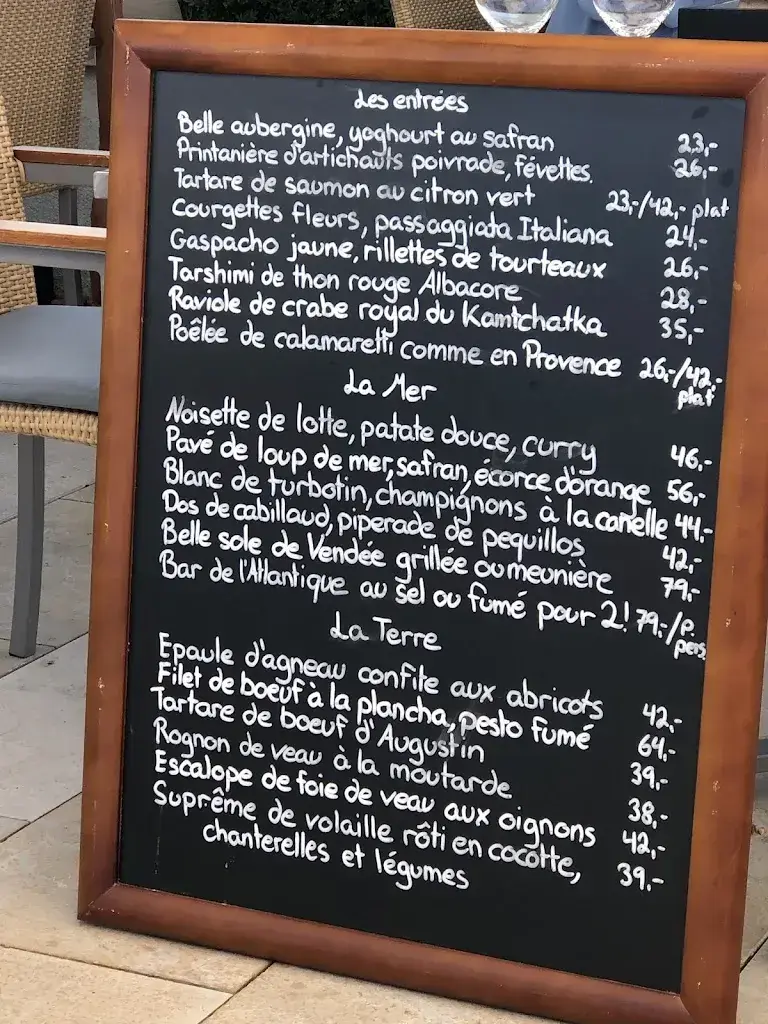 Les entrées
Belle aubergine, yoghourt au safran 23,-
Printanière d'artichauts poivrade, févettes. 26,-
Tartare de saumon au citron vert 23,-/42,- plat
Courgettes fleurs, passaggiata Italiana 24,-
Gaspacho jaune, rillettes de tourteaux 26,-
Tarshimi de thon rouge Albacore 28,-
Raviole de crabe royal du Kamtchatka 35,-
Poêlée de calamaretti comme en Provence 26,-/42,-
plat
La Mer
Noisette de lotte, patate douce, curry 46,-
Pavé de loup de mer, safran, écorce d'orange 56,-
Blanc de turbotin, champignons à la canelle 44,-
Dos de cabillaud, piperade de pequillos 42,-
Belle sole de Vendée grillée ou meunière 79,-
Bar de l'Atlantique au sel ou fumé pour 2! 79,-/p.
pers
La Terre
Epaule d'agneau confite aux abricots 42,-
Filet de boeuf à la plancha, pesto fumé 64,-
Tartare de boeuf d'Augustin 39,-
Rognon de veau à la moutarde 38,-
Escalope de foie de veau aux oignons 42,-
Suprême de volaille rôti en cocotte, 39,-
chanterelles et légumes